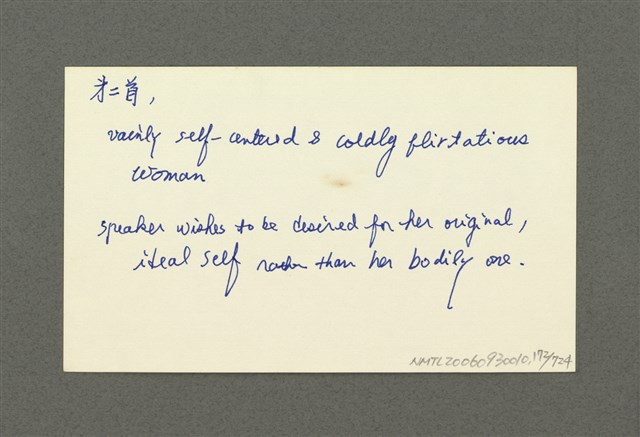 第二首,
vainly self-centered & coldly flirtatious
woman
speaker wishes to be desired for her original,
ideal self rather than her bodily one.
NMTL20060930010.172/724